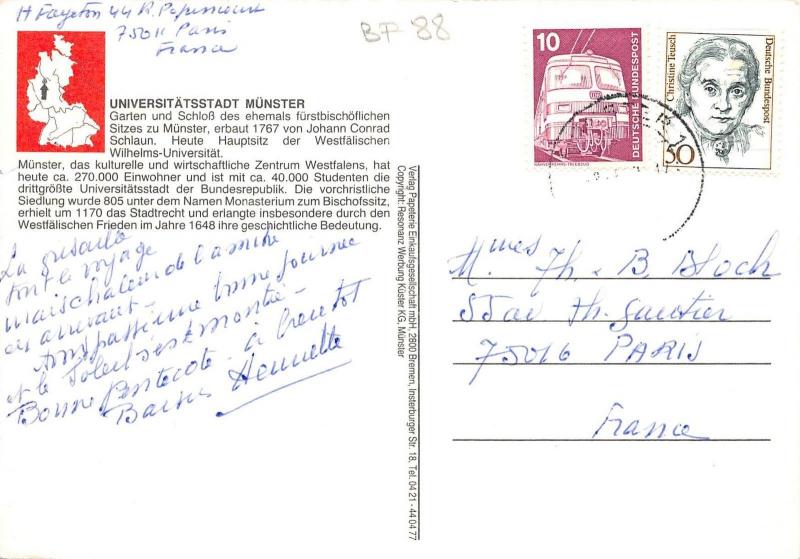 H Fayeton 44 R. Popincourt
75011 Paris
France
BF 88
UNIVERSITÄTSSTADT MÜNSTER
Garten und Schloß des ehemals fürstbischöflichen
Sitzes zu Münster, erbaut 1767 von Johann Conrad
Schlaun. Heute Hauptsitz der Westfälischen
Wilhelms-Universität.
Münster, das kulturelle und wirtschaftliche Zentrum Westfalens, hat
heute ca. 270.000 Einwohner und ist mit ca. 40.000 Studenten die
drittgrößte Universitätsstadt der Bundesrepublik. Die vorchristliche
Siedlung wurde 805 unter dem Namen Monasterium zum Bischofssitz,
erhielt um 1170 das Stadtrecht und erlangte insbesondere durch den
Westfälischen Frieden im Jahre 1648 ihre geschichtliche Bedeutung.
La
tout le voyage
mais chaleur de l'amitié
en arrivant -
bonne journée
et le soleil s'est montré -
Bonne Pentecôte - à bientôt
Baisers Henriette
Verlag Papeterie Einkaufsgesellschaft mbH, 2800 Bremen, Insterburger Str. 18, Tel. 04 21 - 44 04 77
Copyright: Resonanz Werbung Küster KG, Münster
10
DEUTSCHE BUNDESPOST
NAHVERKEHRS-TRIEBZUG
Christine Teusch
Deutsche Bundespost
50
Mmes Th. & B. Bloch
55 av Th. Gautier
75016 PARIS
France